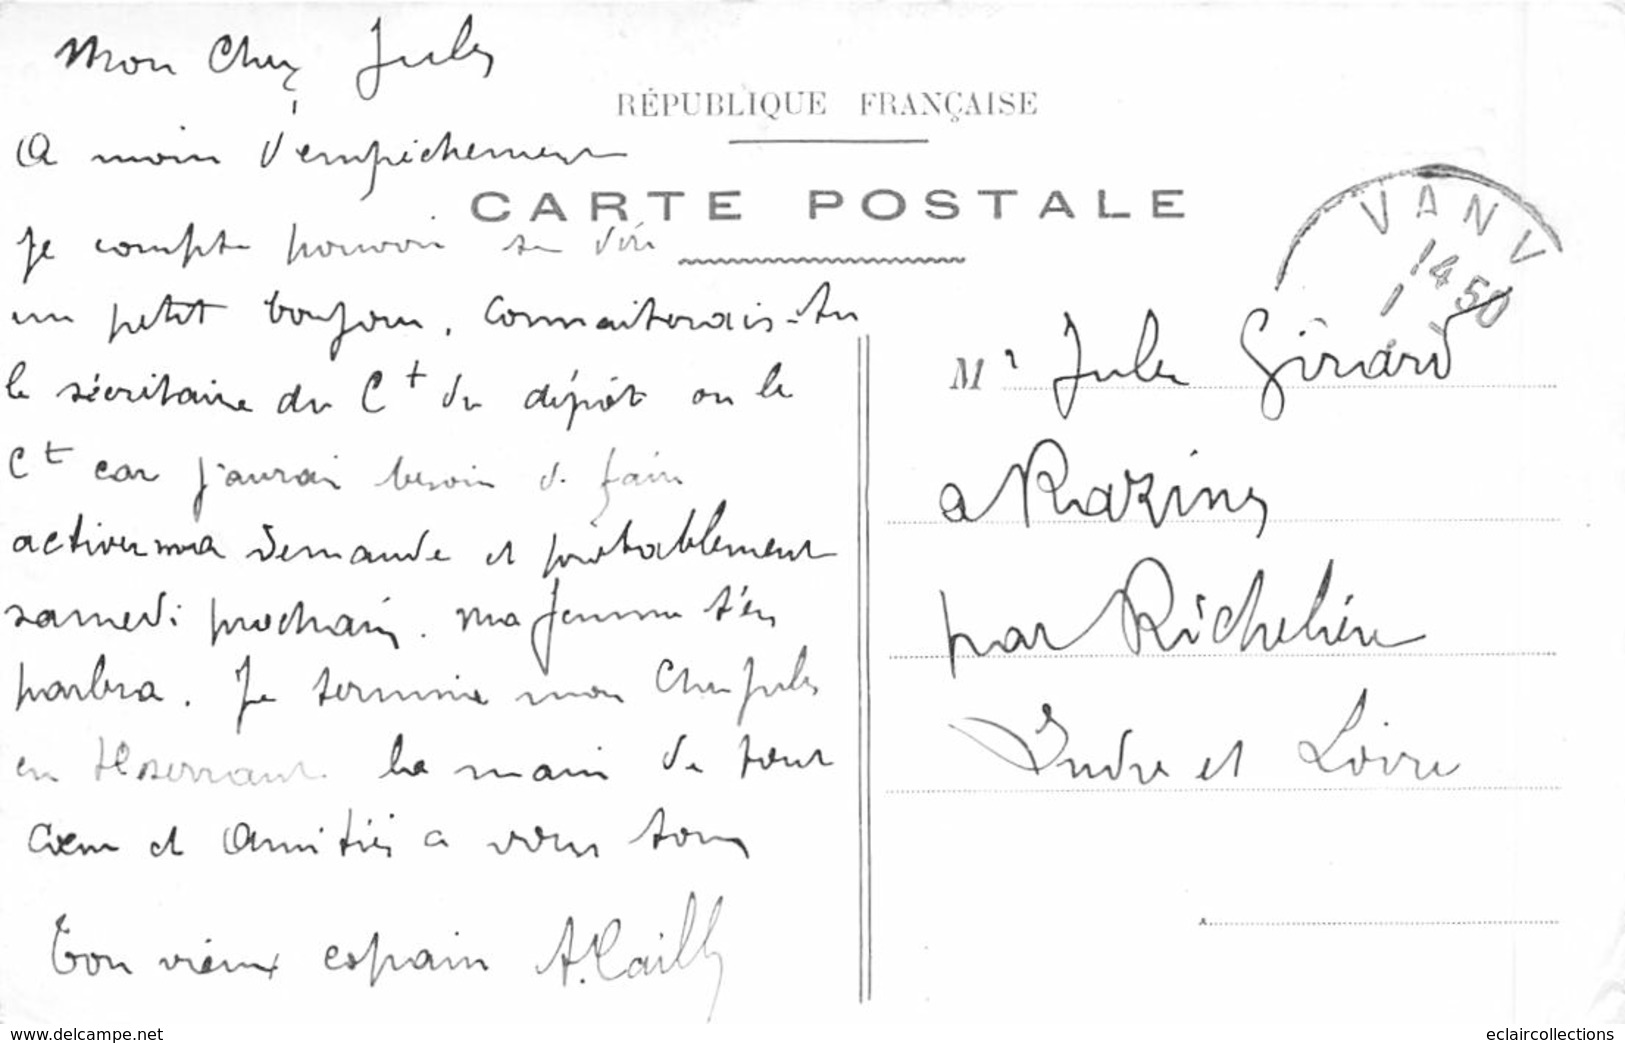 Mon Cher Jules
A moin d'empêchement
je compte pouvoir te dire
un petit bonjour, connaiterais-tu
le sécritaire du Ct du dépôt ou le
Ct car j'aurai besoin de faire
activer ma demande et probablement
samedi prochain. ma femme t'en
parlera. Je termine mon Cher Jules
en te serrant la main de tout
Cœur et Amitiés a vous tous
Ton vieux copain A. Cailly
RÉPUBLIQUE FRANÇAISE
CARTE POSTALE
VANV
14 50
1
Mr Jules Girard
a Razines
par Richelieu
Indre et Loire
www.delcampe.net
eclaircollections